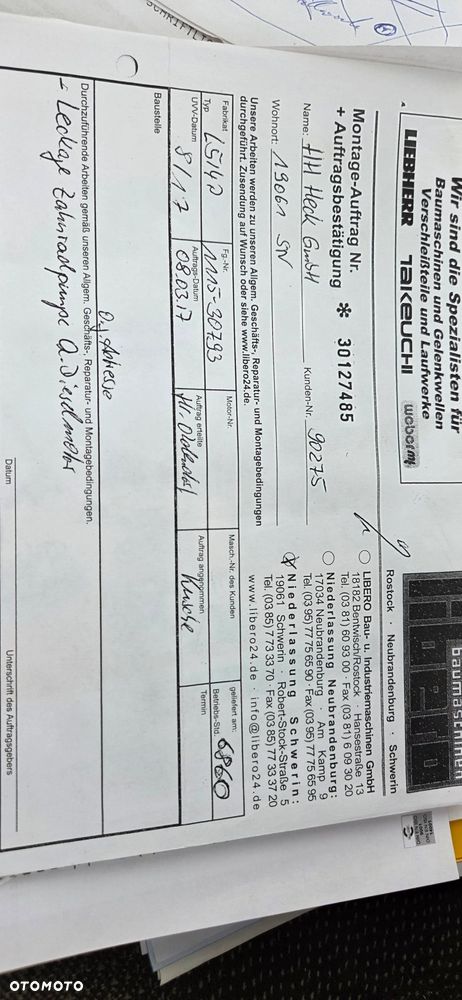 Wir sind die Spezialisten für
Baumaschinen und Gelenkwellen
Verschleißteile und Laufwerke
LIEBHERR TAKEUCHI weber mt
baumaschinen
libero
Rostock · Neubrandenburg · Schwerin
LIBERO Bau- u. Industriemaschinen GmbH
18182 Bentwisch/Rostock · Hansestraße 13
Tel. (03 81) 60 93 00 · Fax (03 81) 6 09 30 20
Niederlassung Neubrandenburg:
17034 Neubrandenburg · Am Kamp 9
Tel. (03 95) 77 75 65 90 · Fax (03 95) 77 75 65 95
Niederlassung Schwerin:
19061 Schwerin · Robert-Stock-Straße 5
Tel. (03 85) 7 73 33 70 · Fax (03 85) 77 33 37 20
www.libero24.de · info@libero24.de
Montage-Auftrag Nr.
+ Auftragsbestätigung * 30127485
Name: HH Heck GmbH Kunden-Nr. 90275
Wohnort: 19061 SN
Unsere Arbeiten werden zu unseren Allgem. Geschäfts-, Reparatur- und Montagebedingungen
durchgeführt. Zusendung auf Wunsch oder siehe www.libero24.de.
Fabrikat Fg.-Nr. Motor-Nr. Masch.-Nr. des Kunden geliefert am:
Typ L514D 1115-30793 Betriebs-Std. 6860
UVV-Datum Auftrags-Datum Auftrag erteilte Auftrag angenommen Termin
8/17 08.03.17
Baustelle
Durchzuführende Arbeiten gemäß unseren Allgem. Geschäfts-, Reparatur- und Montagebedingungen.
- Leckage Zahnradpumpe a. Dieselmotor
Datum Unterschrift des Auftragsgebers
OTOMOTO
OTOMOTO